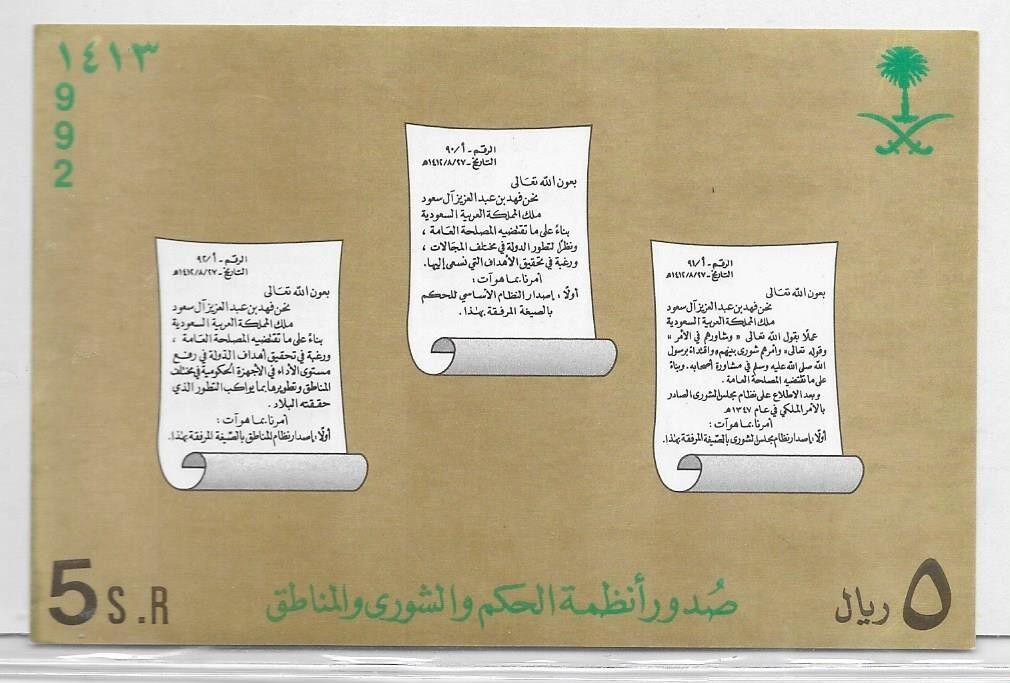 ١٤١٣
9
9
2
الرقم - أ/٩٠
التاريخ - ١٤١٢/٨/٢٧هـ
بعون الله تعالى
نحن فهد بن عبد العزيز آل سعود
ملك المملكة العربية السعودية
بناءً على ما تقتضيه المصلحة العامة ،
ونظرًا لتطور الدولة في مختلف المجالات ،
ورغبة في تحقيق الأهداف التي نسعى إليها.
أمرنا بما هو آت :
أولًا ، إصدار النظام الأساسي للحكم
بالصيغة المرفقة بهذا .
الرقم - أ/٩١
التاريخ - ١٤١٢/٨/٢٧هـ
بعون الله تعالى
نحن فهد بن عبد العزيز آل سعود
ملك المملكة العربية السعودية
عملًا بقول الله تعالى « وشاورهم في الأمر »
وقوله تعالى « وأمرهم شورى بينهم » واقتداء برسول
الله صلى الله عليه وسلم في مشاورة أصحابه . وبناءً
على ما تقتضيه المصلحة العامة .
وبعد الاطلاع على نظام مجلس الشورى الصادر
بالأمر الملكي في عام ١٣٤٧هـ
أمرنا بما هو آت :
أولًا ، إصدار نظام مجلس الشورى بالصيغة المرفقة بهذا .
الرقم - أ/٩٢
التاريخ - ١٤١٢/٨/٢٧هـ
بعون الله تعالى
نحن فهد بن عبد العزيز آل سعود
ملك المملكة العربية السعودية
بناءً على ما تقتضيه المصلحة العامة ،
ورغبة في تحقيق أهداف الدولة في رفع
مستوى الأداء في الأجهزة الحكومية في مختلف
المناطق وتطويرها بما يواكب التطور الذي
حققته البلاد .
أمرنا بما هو آت :
أولًا ، إصدار نظام المناطق بالصيغة المرفقة بهذا .
صُدور أنظمة الحكم والشورى والمناطق
٥ ريال
5 S.R